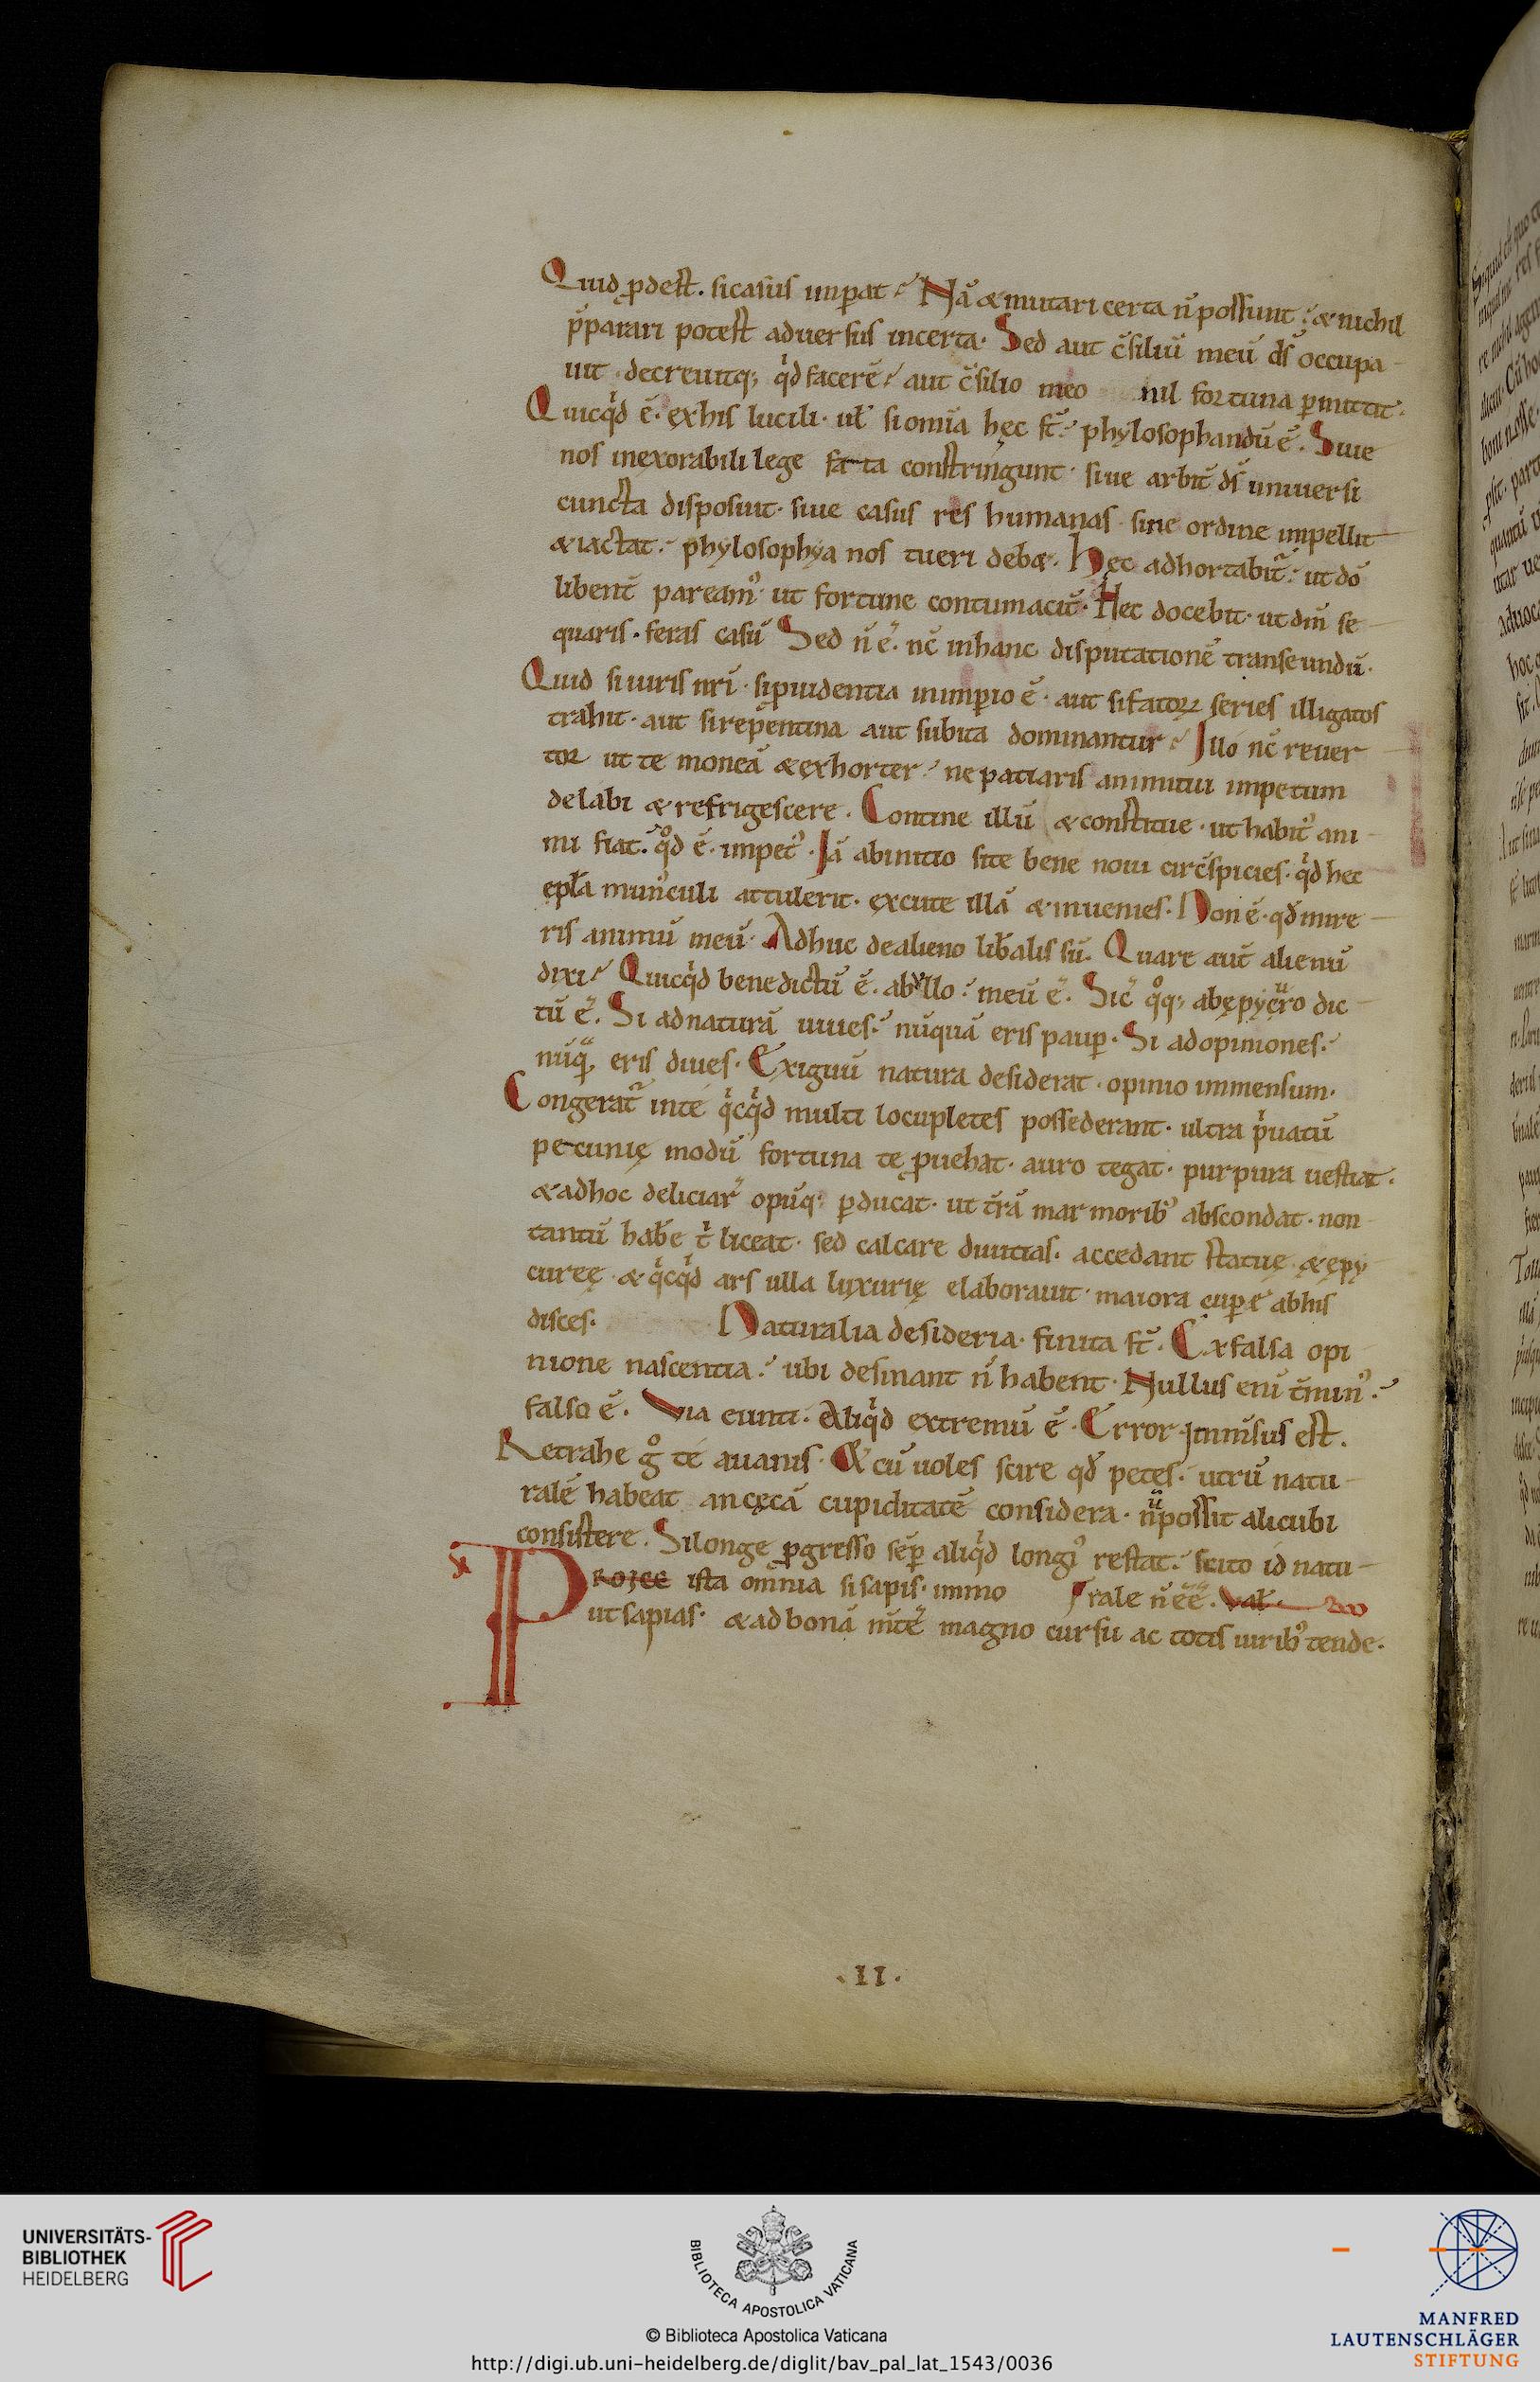 Quid ꝓdest. si casus imꝑat? Nā & mutari certa n̄ possunt: & nichil
p̄parari potest aduersus incerta. Sed aut c̄siliū meū ds̄ occupa
uit decreuitq; qͥd facerē? aut c̄silio meo nil fortuna ꝑmittit.
Quicqͥd ē. ex his lucili. ul̄ si omīa hęc st̄: phylosophandū ē. Siue
nos inexorabili lege fata constringunt. siue arbit̄ ds̄ uniuersi
cuncta disposuit. siue casus res humanas sine ordine impellit
& iactat: phylosophya nos tueri deb&. Hęc adhortabit̄: ut dō
libent̄ pareamꝰ ut fortune contumaciꝰ. Hec docebit. ut dm̄ se
quaris. feras casū Sed n̄ ē. nc̄ in hanc disputationē transeundū.
Quid si iuris nr̄i. si ꝓuidentia in imꝑio ē. aut si fatoꝝ series illigatos
trahit. aut si repentina aut subita dominantur? Illo nc̄ reuer
tor ut te moneā & exhorter: ne patiaris animi tui impetum
delabi & refrigescere. Contine illū & constitue. ut habitꝰ ani
mi fiat. qͦd ē. impetꝰ. Iā ab initio si te bene noui circ̄spicies. qͥd hec
epl̄a munꝰculi attulerit. excute illā & inuenies. Non ē. qd̄ mire
ris animū meū. Adhuc de alieno lib̄alis sū. Quare aut̄ alienū
dixi? Quicqͥd bene dictū ē. ab ullo: meū ē. Sic̄ qͦq; ab ępycuro dic
tū ē. Si ad naturā uiues: nūquā eris pauꝑ. Si ad opiniones:
nūqͣ, eris diues. Exiguū natura desiderat. opinio immensum.
Congerat̄ in te qͥcqͥd multi locupletes possederant. ultra pͥuatū
pecunię modū fortuna te ꝓuehat. auro tegat. purpura uestiat.
& ad hoc deliciar̄ opūq; ꝑducat. ut t̄rā marmoribꝰ abscondat. non
tantū hab̄e tͥ liceat. sed calcare diuitias. accedant statuę & ępy
curęę & qͥcqͥd ars ulla luxurię elaborauit. maiora cuꝑe ab his
disces. Naturalia desideria. finita st̄. Ex falsa opi
nione nascentia: ubi desinant n̄ habent. Nullus enī t̄minꝰ:
falso ē. Via eunti. Aliqͥd extremū ē. Error inmn̄sus est.
Retrahe gͦ te a uanis. & cū uoles scire qd̄ petes: utrū natu
ralē habeat an cęcā cupiditatē considera. nū possit alicubi
consistere. Si longe ꝓgresso sēꝑ aliqͥd longiꝰ restat: scito id natu
rale n̄ ēē. Val.
PROICE ista omnia si sapis. immo
ut sapias. & ad bonā mt̄ē magno cursu ac totis uiribꝰ tende.
.II.
UNIVERSITÄTS-
BIBLIOTHEK
HEIDELBERG
BIBLIOTECA APOSTOLICA VATICANA
© Biblioteca Apostolica Vaticana
http://digi.ub.uni-heidelberg.de/diglit/bav_pal_lat_1543/0036
MANFRED
LAUTENSCHLÄGER
STIFTUNG